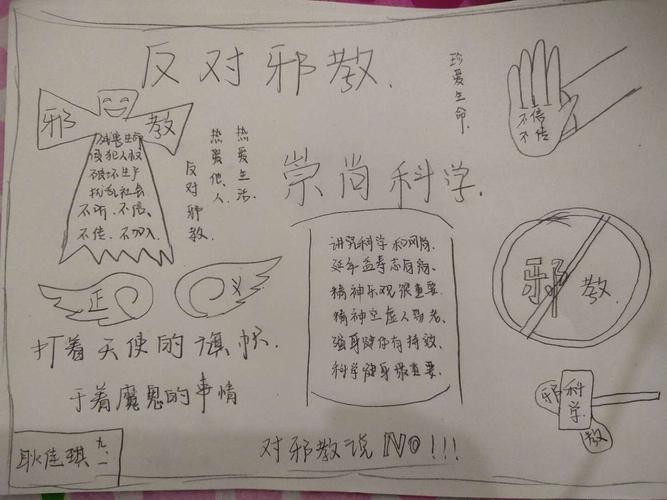 反对邪教.
珍爱生命.
不信
不传
邪 教
残害生命
侵犯人权
破坏生产
扰乱社会
不听.不信.
不传.不加入.
热爱生活.
热爱他人.
反对邪教.
崇尚科学.
讲究科学和风府.
正 义
精神乐观很重要.
精神空虚人易老.
强身健体有持效.
科学健身最重要.
邪教.
打着天使的旗帜.
干着魔鬼的事情
邪 科学 教
对邪教说NO!!!
耿佳琪 九.一